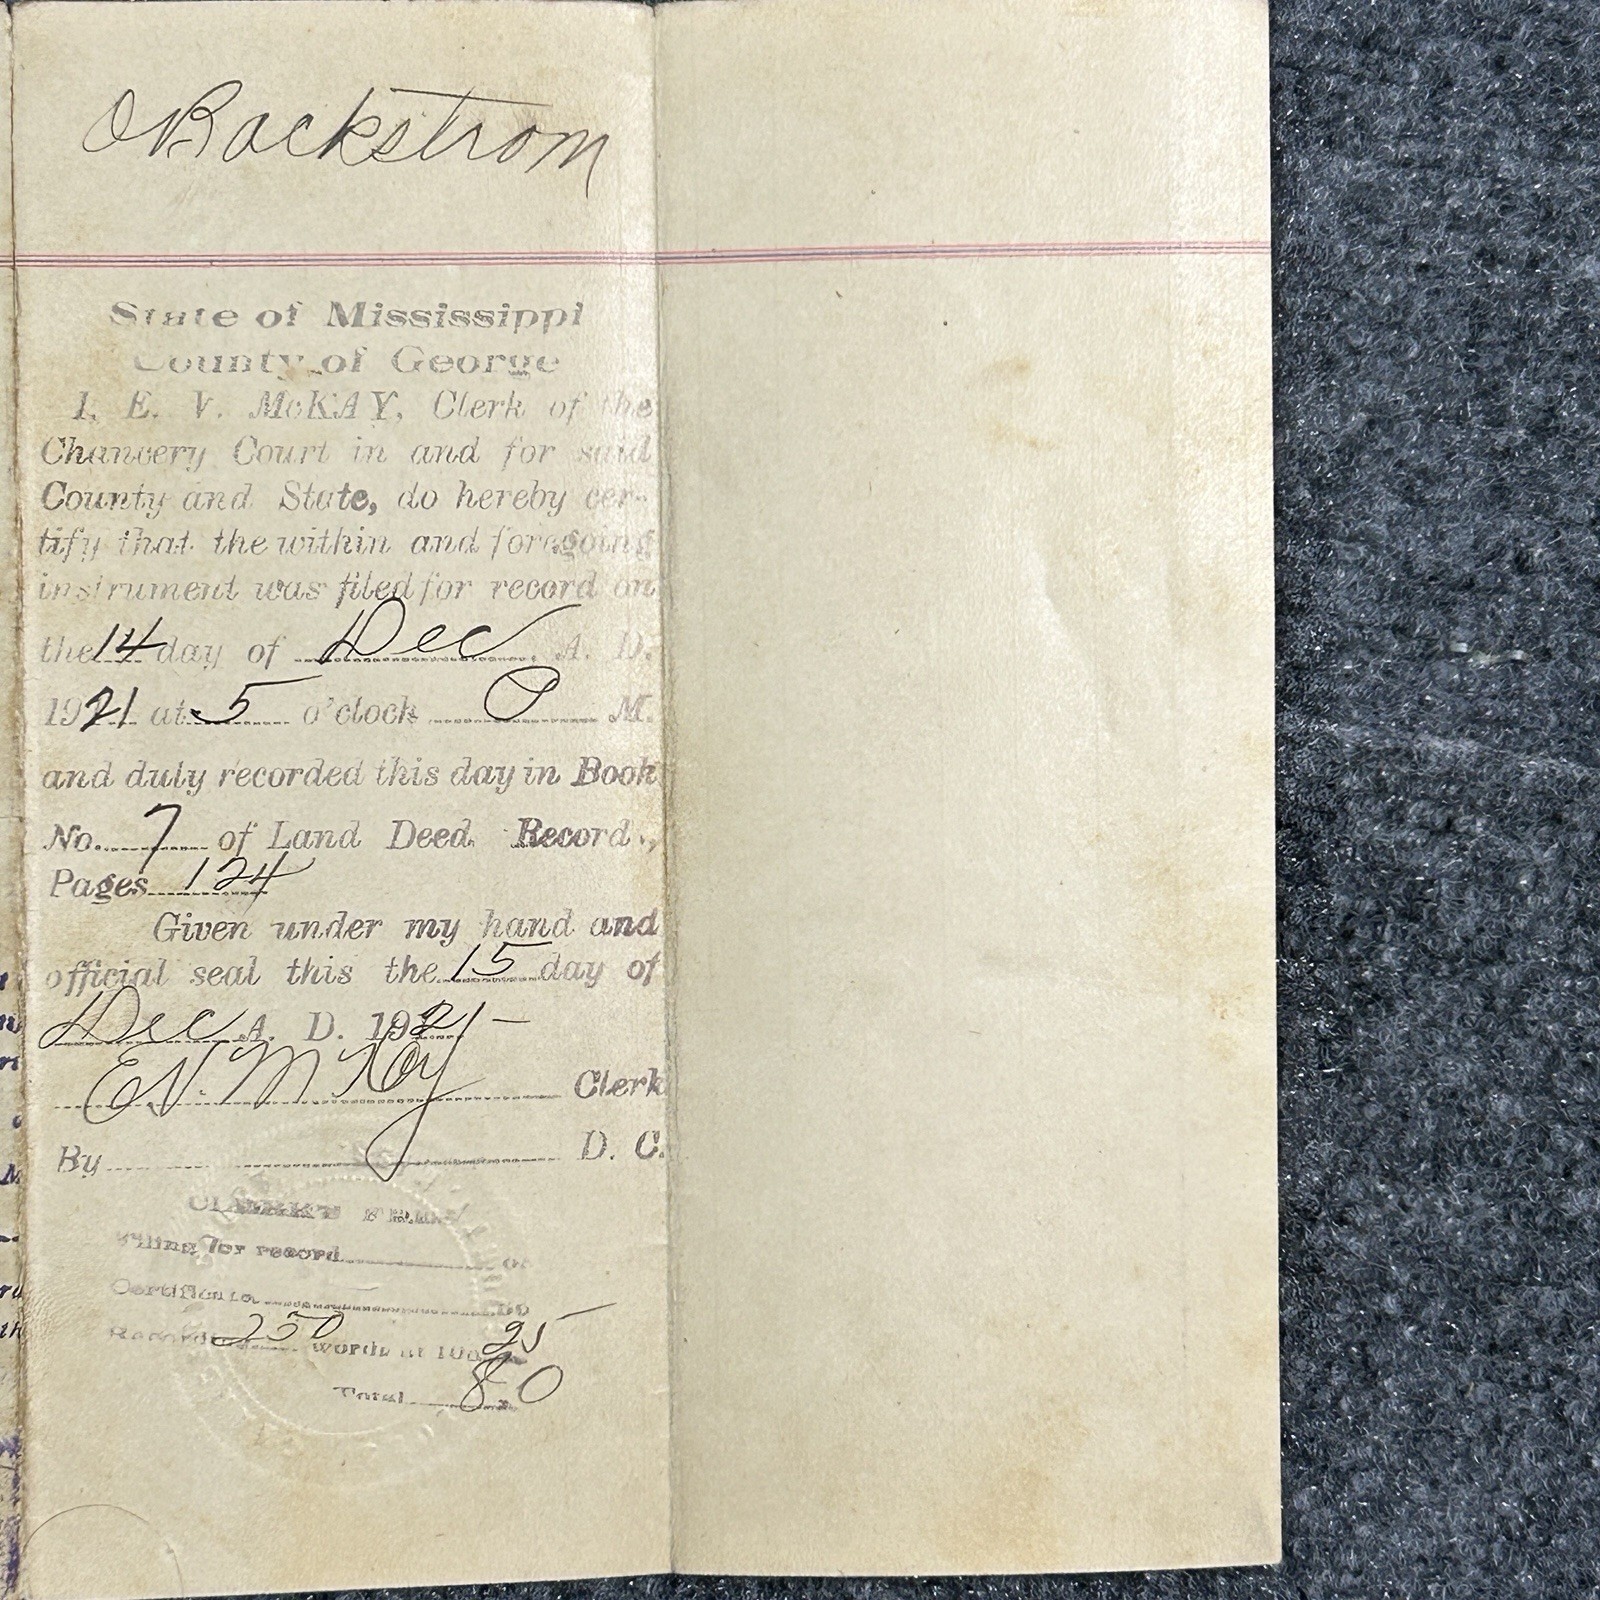 O Backstrom
State of Mississippi
County of George
I, E. V. McKAY, Clerk of the
Chancery Court in and for said
County and State, do hereby cer-
tify that the within and foregoing
instrument was filed for record on
the 14 day of Dec, A. D.
1921 at 5 o'clock P M.
and duly recorded this day in Book
No. 7 of Land Deed Record,
Pages 124
Given under my hand and
official seal this the 15 day of
Dec A. D. 1921-
E.V. McKay Clerk
By D. C.
CLERK'S FEES
Filing for record
Certificate
Record 250 words at 10c 25
Total 80